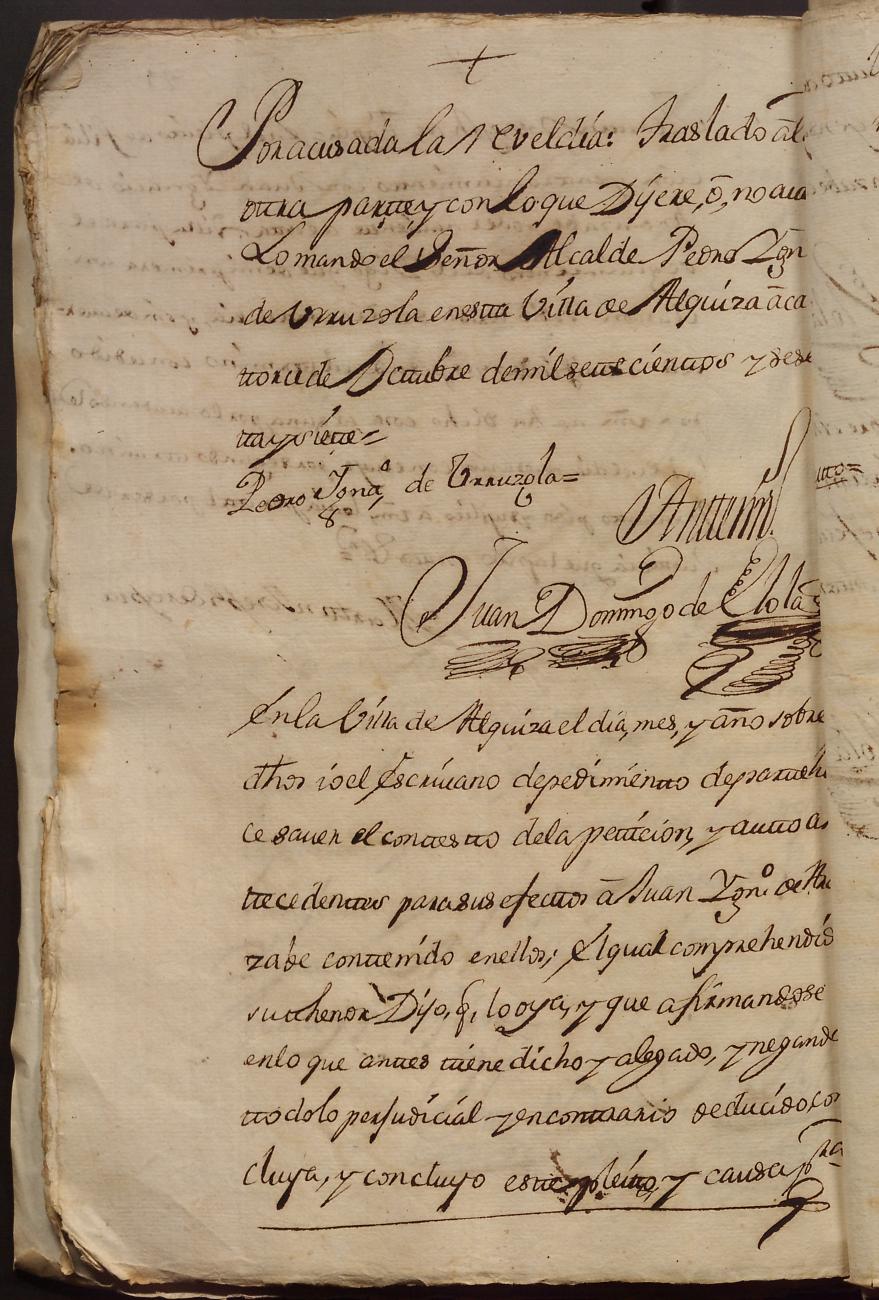 +
Por acusada la reveldia: traslado ā la
otra parte, y con lo que Dijere, ō, no
Lo mando el Señor Alcalde Pedro Ygn
de Urruzola en esta Villa de Alquiza ā ca
torce de Octubre de mil setecientos y sese
ta y siete=
Pedro Ignã. de Urruzola=
Antte mi.
Juan Domingo de Elola
En la Villa de Alquiza el dia, mes, y año sobre
dhos io el Escrivano de pedimiento de parte hi
ce saver el contesto de la peticion, y autto an
tecedentes para sus efectos ā Juan Ygn.o de
zabe contenido en ellos, El qual comprehendió
su thenor Dijo, q, lo oya, y que afirmandose
en lo que antes tiene dicho y alegado, y negando
ttodo lo perjudicial y en contrario deducido, con
cluya, y concluyo este pleito, y causa pra
utto=